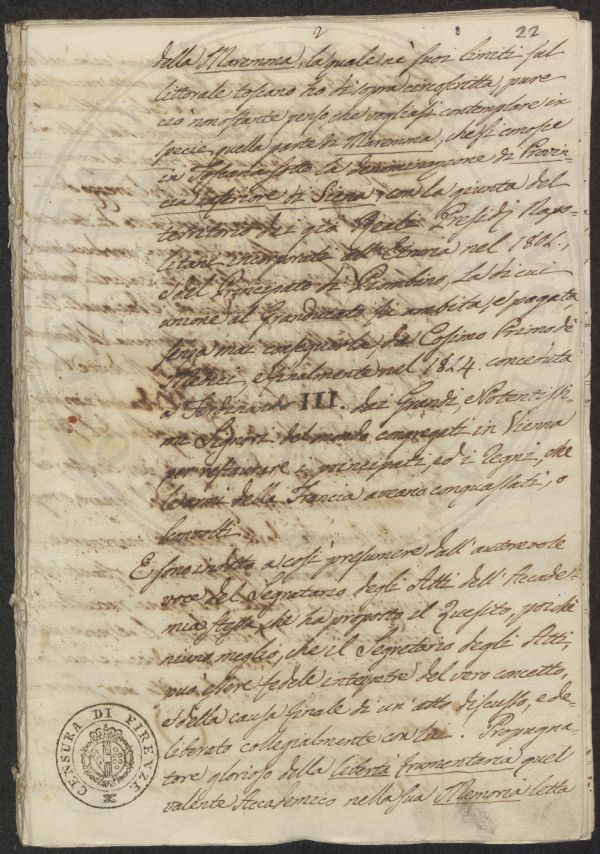 2 22
della Maremma, la quale nè suoi limiti sul
littorale toscano ho di sopra circoscritta, pure
ciò nonostante penso che vogliasi contemplare in
specie quella parte di Maremma, che si conosce
in Toscana sotto la denominazione di Provin-
cia inferiore di Siena, con la giunta del
territorio dei già Reali Presidj Napo-
litani incorporati all'Etruria nel 1801.,
e del Principato di Piombino, la di cui
unione al Granducato fu ambita, e pagata
senza mai conseguirla, da Cosimo Primo de
Medici, e finalmente nel 1814. conceduta
a Ferdinando III. dai Grandi, e Potentissi-
mi Signori del mondo congregati in Vienna
per restaurare i principati, ed i Regni, che
le armi della Francia aveano conquassati, o
E sono indotto a così presumere dall'autorevole
voce del Segretario degli Atti dell'Accade-
mia stessa, che ha proposto il Quesito, poichè
niuno meglio, che il Segretario degli Atti,
può essere fedele interpetre del vero concetto,
e della causa finale di un'atto discusso, e de-
liberato collegialmente con lui. Propugna-
tore glorioso della libertà frumentaria quel
valente Accademico nella sua Memoria letta
CENSURA DI FIRENZE